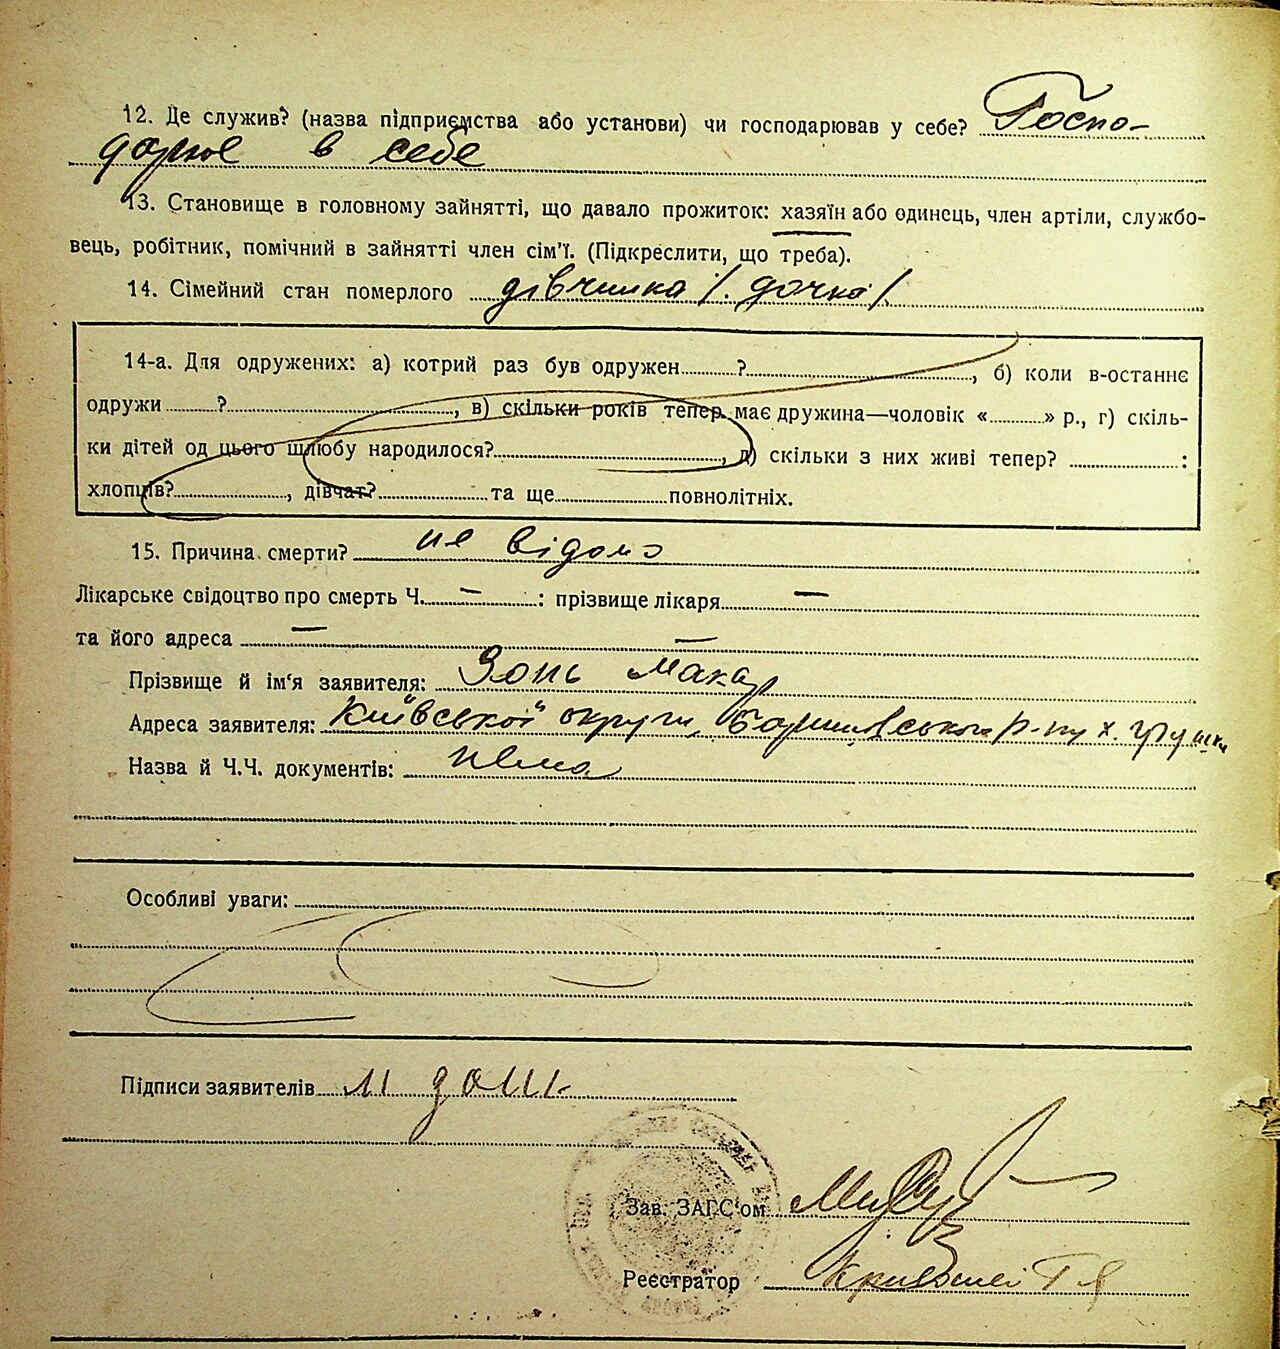 12. Де служив? (назва підприємства або установи) чи господарював у себе? Госпо-
дарює в себе
13. Становище в головному зайнятті, що давало прожиток: хазяїн або одинець, член артіли, службо-
вець, робітник, помічний в зайнятті член сім'ї. (Підкреслити, що треба).
14. Сімейний стан померлого дівчинка /. дочка /.
14-а. Для одружених: а) котрий раз був одружен ? , б) коли в-останнє
одружи ? , в) скільки років тепер має дружина—чоловік « » р., г) скіль-
ки дітей од цього шлюбу народилося? , д) скільки з них живі тепер? :
хлопців? , дівчат? та ще повнолітніх.
15. Причина смерти? не відомо
Лікарське свідоцтво про смерть Ч. — : прізвище лікаря —
та його адреса — —
Прізвище й ім'я заявителя: Зонь Макар
Адреса заявителя: Київської округи, р-ну х.
Назва й Ч.Ч. документів: нема
Особливі уваги:
Підписи заявителів М
Зав. ЗАГС'ом
Реєстратор